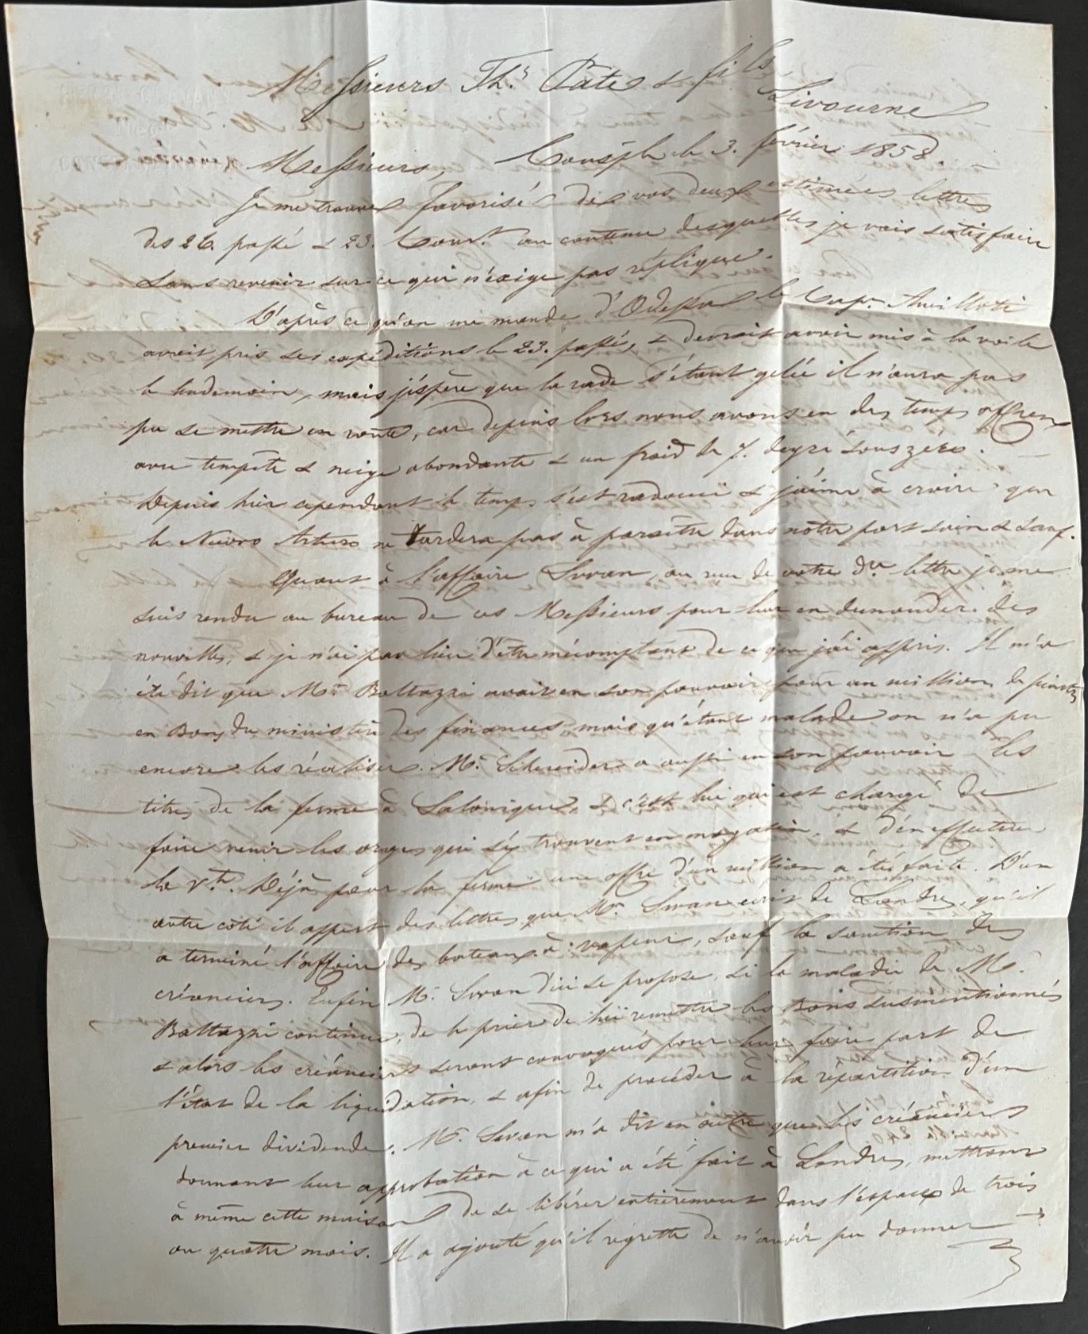 Messieurs Th.s Pate & fils
Livourne
Messieurs, Consple le 3. février 1858.
Je me trouve favorisé des vos deux estimées lettres
des 26 passé & 23. Cour.t au contenu desquelles je vais satisfaire
sans revenir sur ce qui n'exige pas replique.
D'après ce qu'on me mande d'Odessa le Cap.n
avait pris ses expeditions le 23. passé, & devrait avoir mis à la voile
le lendemain, mais j'éspère que la rade s'étant gelée il n'aura pas
pu se mettre en route, car depuis lors nous avons eu des temps affreux
avec tempête & neige abondante & un froid de 7. degrés sous zero.
Depuis hier cependant le temps s'est radouci & j'aime à croire que
le Nuovo Arturo ne tardera pas à paraître dans notre port sain & sauf.
Quant à l'affaire Swan au reçu de votre d.re lettre je me
suis rendu au bureau de ces Messieurs pour leur en demander des
nouvelles, & je n'ai pas lieu d'être mécomptant de ce que j'ai appris. Il m'a
été dit que Mr Baltazzi avait en son pouvoir pour un million de piastres
en Bons du ministère des finances, mais qu'étant malade on n'a pu
encore les réaliser. Mr. Schneider a aussi en son pouvoir les
titres de la ferme à Salonique, & c'est lui qui est chargé de
faire venir les orges qui s'y trouvent en magasin, & d'en effectuer
la V.te. Déjà pour la ferme une offre d'un million a été faite. D'un
autre côté il appert des lettres que Mr Swan écrit de Londres, qu'il
a terminé l'affaire des bateaux à vapeur, sauf la sanction des
créanciers. Enfin Mr. Swan d'ici se propose, si la maladie de Mr.
Baltazzi continue, de le prier de lui remettre les Bons susmentionnés
& alors les créanciers seront convoqués pour leur faire part de
l'état de la liquidation, & afin de procéder à la répartition d'un
premier dividende. Mr. Swan m'a dit en outre que les créanciers
donnant leur approbation à ce qui a été fait à Londres, mettront
à même cette maison de se libérer entièrement dans l'espace de trois
ou quatre mois. Il a ajouté qu'il regrette de n'avoir pu donner